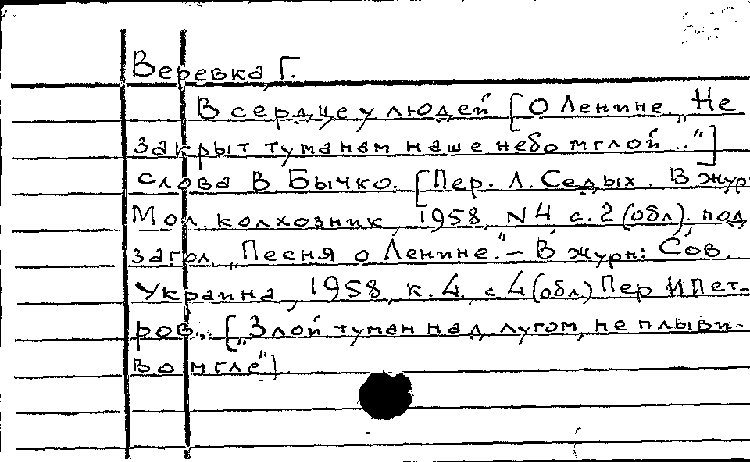 Веревка, Г.
В сердце у людей [О Ленине „Не
закрыт туманам наше небо мглой..."]
слова В Бычко. [Пер. Л. Седых. В жур
Мол. колхозник, 1958, N4 с.2 (обл). под
загол. „Песня о Ленине." – В журн: Сов.
Украина, 1958, к. 4, с 4 (обл.) Пер И Пет-
ров.. [„Злой туман над лугом, не плыви-
во мгле")